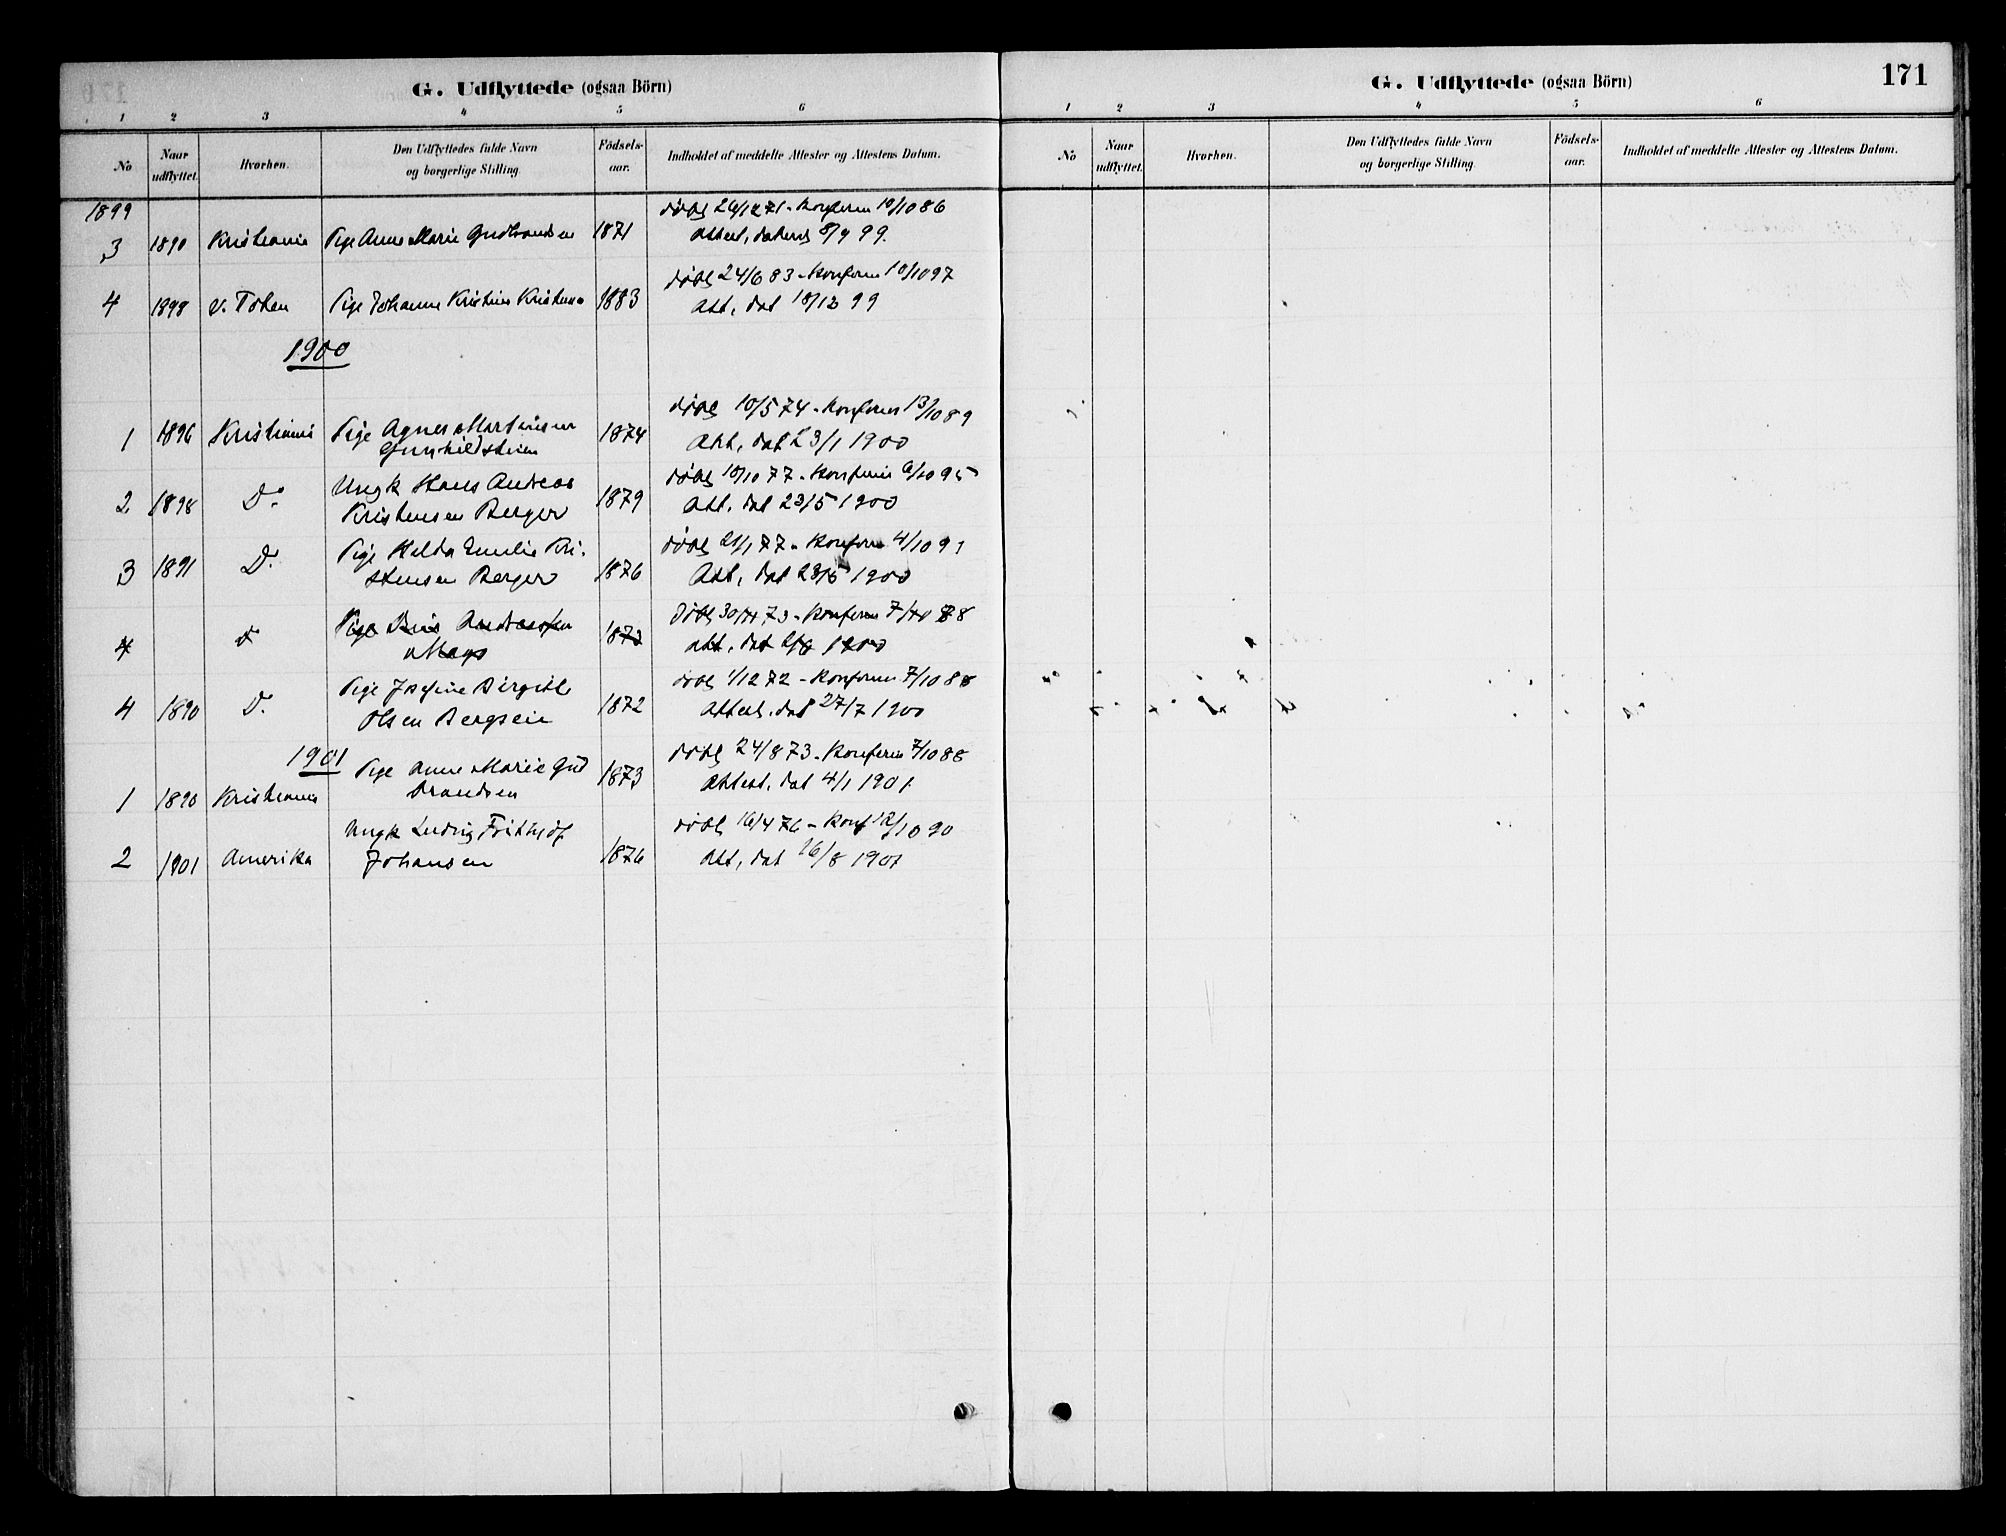 G. Udflyttede (ogsaa Börn)
1 2 3 4 5 6
No Naar udflyttet. Hvorhen. Den Udflyttedes fulde Navn og borgerlige Stilling. Födsels-aar. Indholdet af meddelte Attester og Attestens Datum.
1899
døbt 26/12 71 - Konform 10/10 86
3 1890 Kristiania Pige Anne Marie Gudbrandsen 1871 Attest, dateret 8/9 99.
døbt 24/6 83 - Konform 10/10 97
4 1898 V. Toten Pige Johanne Kristine 1883 Att, dat 18/12 99
1900
døbt 10/5 74 - Konform 13/10 89
1 1896 Kristiania Pige Agnes Martinsen 1874 Att, dat 23/1 1900
Gunhildstien
Ungk Hans Andreas døbt 10/10 77 - Konform 6/10 95
2 1898 Do 1879 Att, dat 23/5 1900
Kristensen Berger
Pige Hulda Emilie Kri- døbt 21/1 77 - Konform 4/10 91
3 1891 Do 1876 Att, dat 23/5 1900
stensen Berger
Pige Andersen Døbt 30/ 73 - Konform 7/10 88
4 1873 att, dat 1900
Pige Josefine Birgitte døbt 1/12 72 - Konform 7/10 88
4 1890 Do 1872 Attest. dat 27/7 1900
Olsen Bergseie
1901
Pige Anne Marie Gud døbt 24/8 73 - Konform 7/10 88
1 1890 Kristiania brandsen 1873 Attest, dat 4/1 1901.
Ungk Ludvig Frithjof døbt 16/4 76 - Konf 12/10 90
2 1901 Amerika Johansen 1876 Att, dat 16/8 1901
G. Udflyttede (ogsaa Börn) 171
1 2 3 4 5 6
No Naar udflyttet. Hvorhen. Den Udflyttedes fulde Navn og borgerlige Stilling. Födsels-aar. Indholdet af meddelte Attester og Attestens Datum.